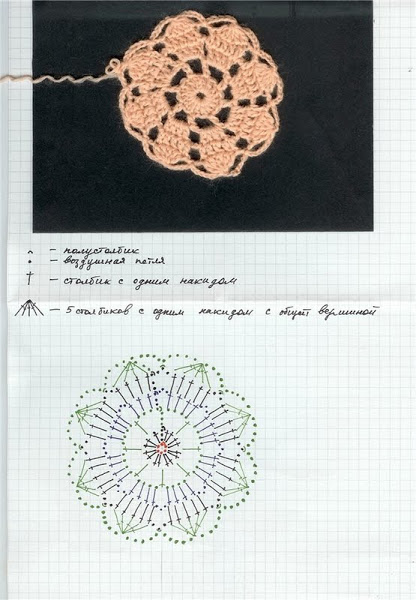 ⌢ — полустолбик
• — воздушная петля
† — столбик с одним накидом
— 5 столбиков с одним накидом с общей вершиной